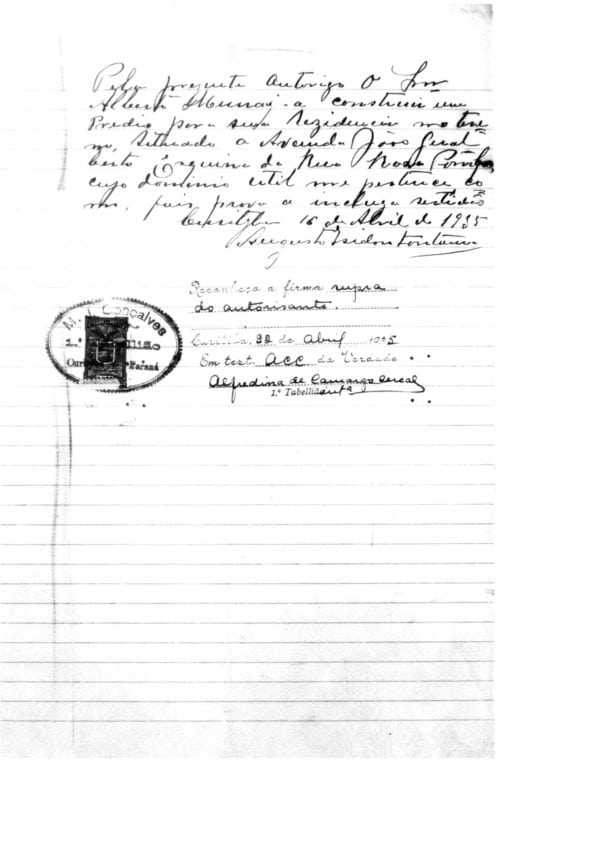 Pelo presente autorizo o Snr
Alberto a construir um
Predio para sua Rezidencia no terre
no, situado a Avenida João Gual
berto Esquina da Rua
cujo dominio util me pertence co
mo, prova a incluza certidão
Curityba 16 de Abril de 1935
Augusto Isidoro Fontana
Reconheço a firma supra
do autorisante.
Curitiba, 30 de Abril 1935
Em test. ACC da Verdade
Alfredina de Camargo
1.º Tabelliã
M. J. Gonçalves
1.º Tabellião
Paraná